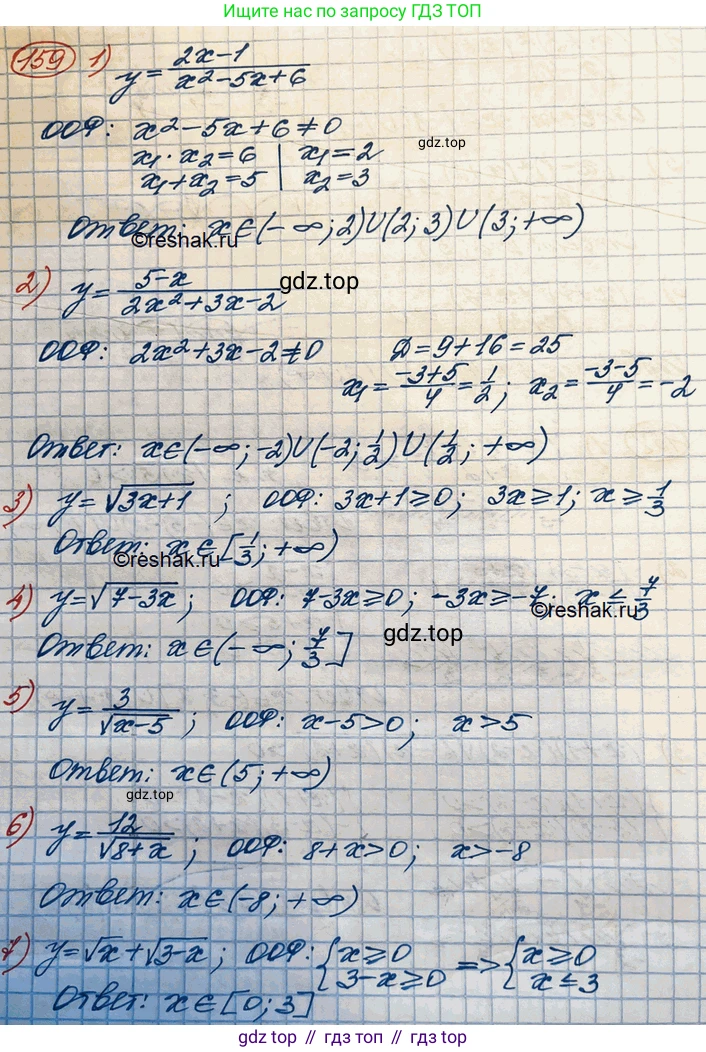 Ищите ещё по запросу ГДЗ ТОП
159 1) y = (2x-1)/(x²-5x+6)
ООФ: x²-5x+6≠0
gdz.top
x₁·x₂=6 | x₁=2
x₁+x₂=5 | x₂=3
Ответ: x∈(-∞; 2)∪(2; 3)∪(3; +∞)
©reshak.ru
2) y = (5-x)/(2x²+3x-2)
gdz.top
ООФ: 2x²+3x-2≠0 Д=9+16=25
x₁=(-3+5)/4=1/2; x₂=(-3-5)/4=-2
Ответ: x∈(-∞; -2)∪(-2; 1/2)∪(1/2; +∞)
3) y=√(3x+1) ; ООФ: 3x+1≥0; 3x≥1; x≥1/3
Ответ: x∈[1/3; +∞)
©reshak.ru
4) y=√(7-3x); ООФ: 7-3x≥0; -3x≥-7; x≤7/3
©reshak.ru
Ответ: x∈(-∞; 7/3]
gdz.top
5) y=3/√(x-5) ; ООФ: x-5>0; x>5
Ответ: x∈(5; +∞)
gdz.top
6) y=12/√(8+x) ; ООФ: 8+x>0; x>-8
Ответ: x∈(-8; +∞)
7) y=√x+√(3-x); ООФ: {x≥0 3-x≥0 => {x≥0 x≤3
Ответ: x∈[0; 3]
gdz.top // гдз.топ // gdz.top // гдз.топ